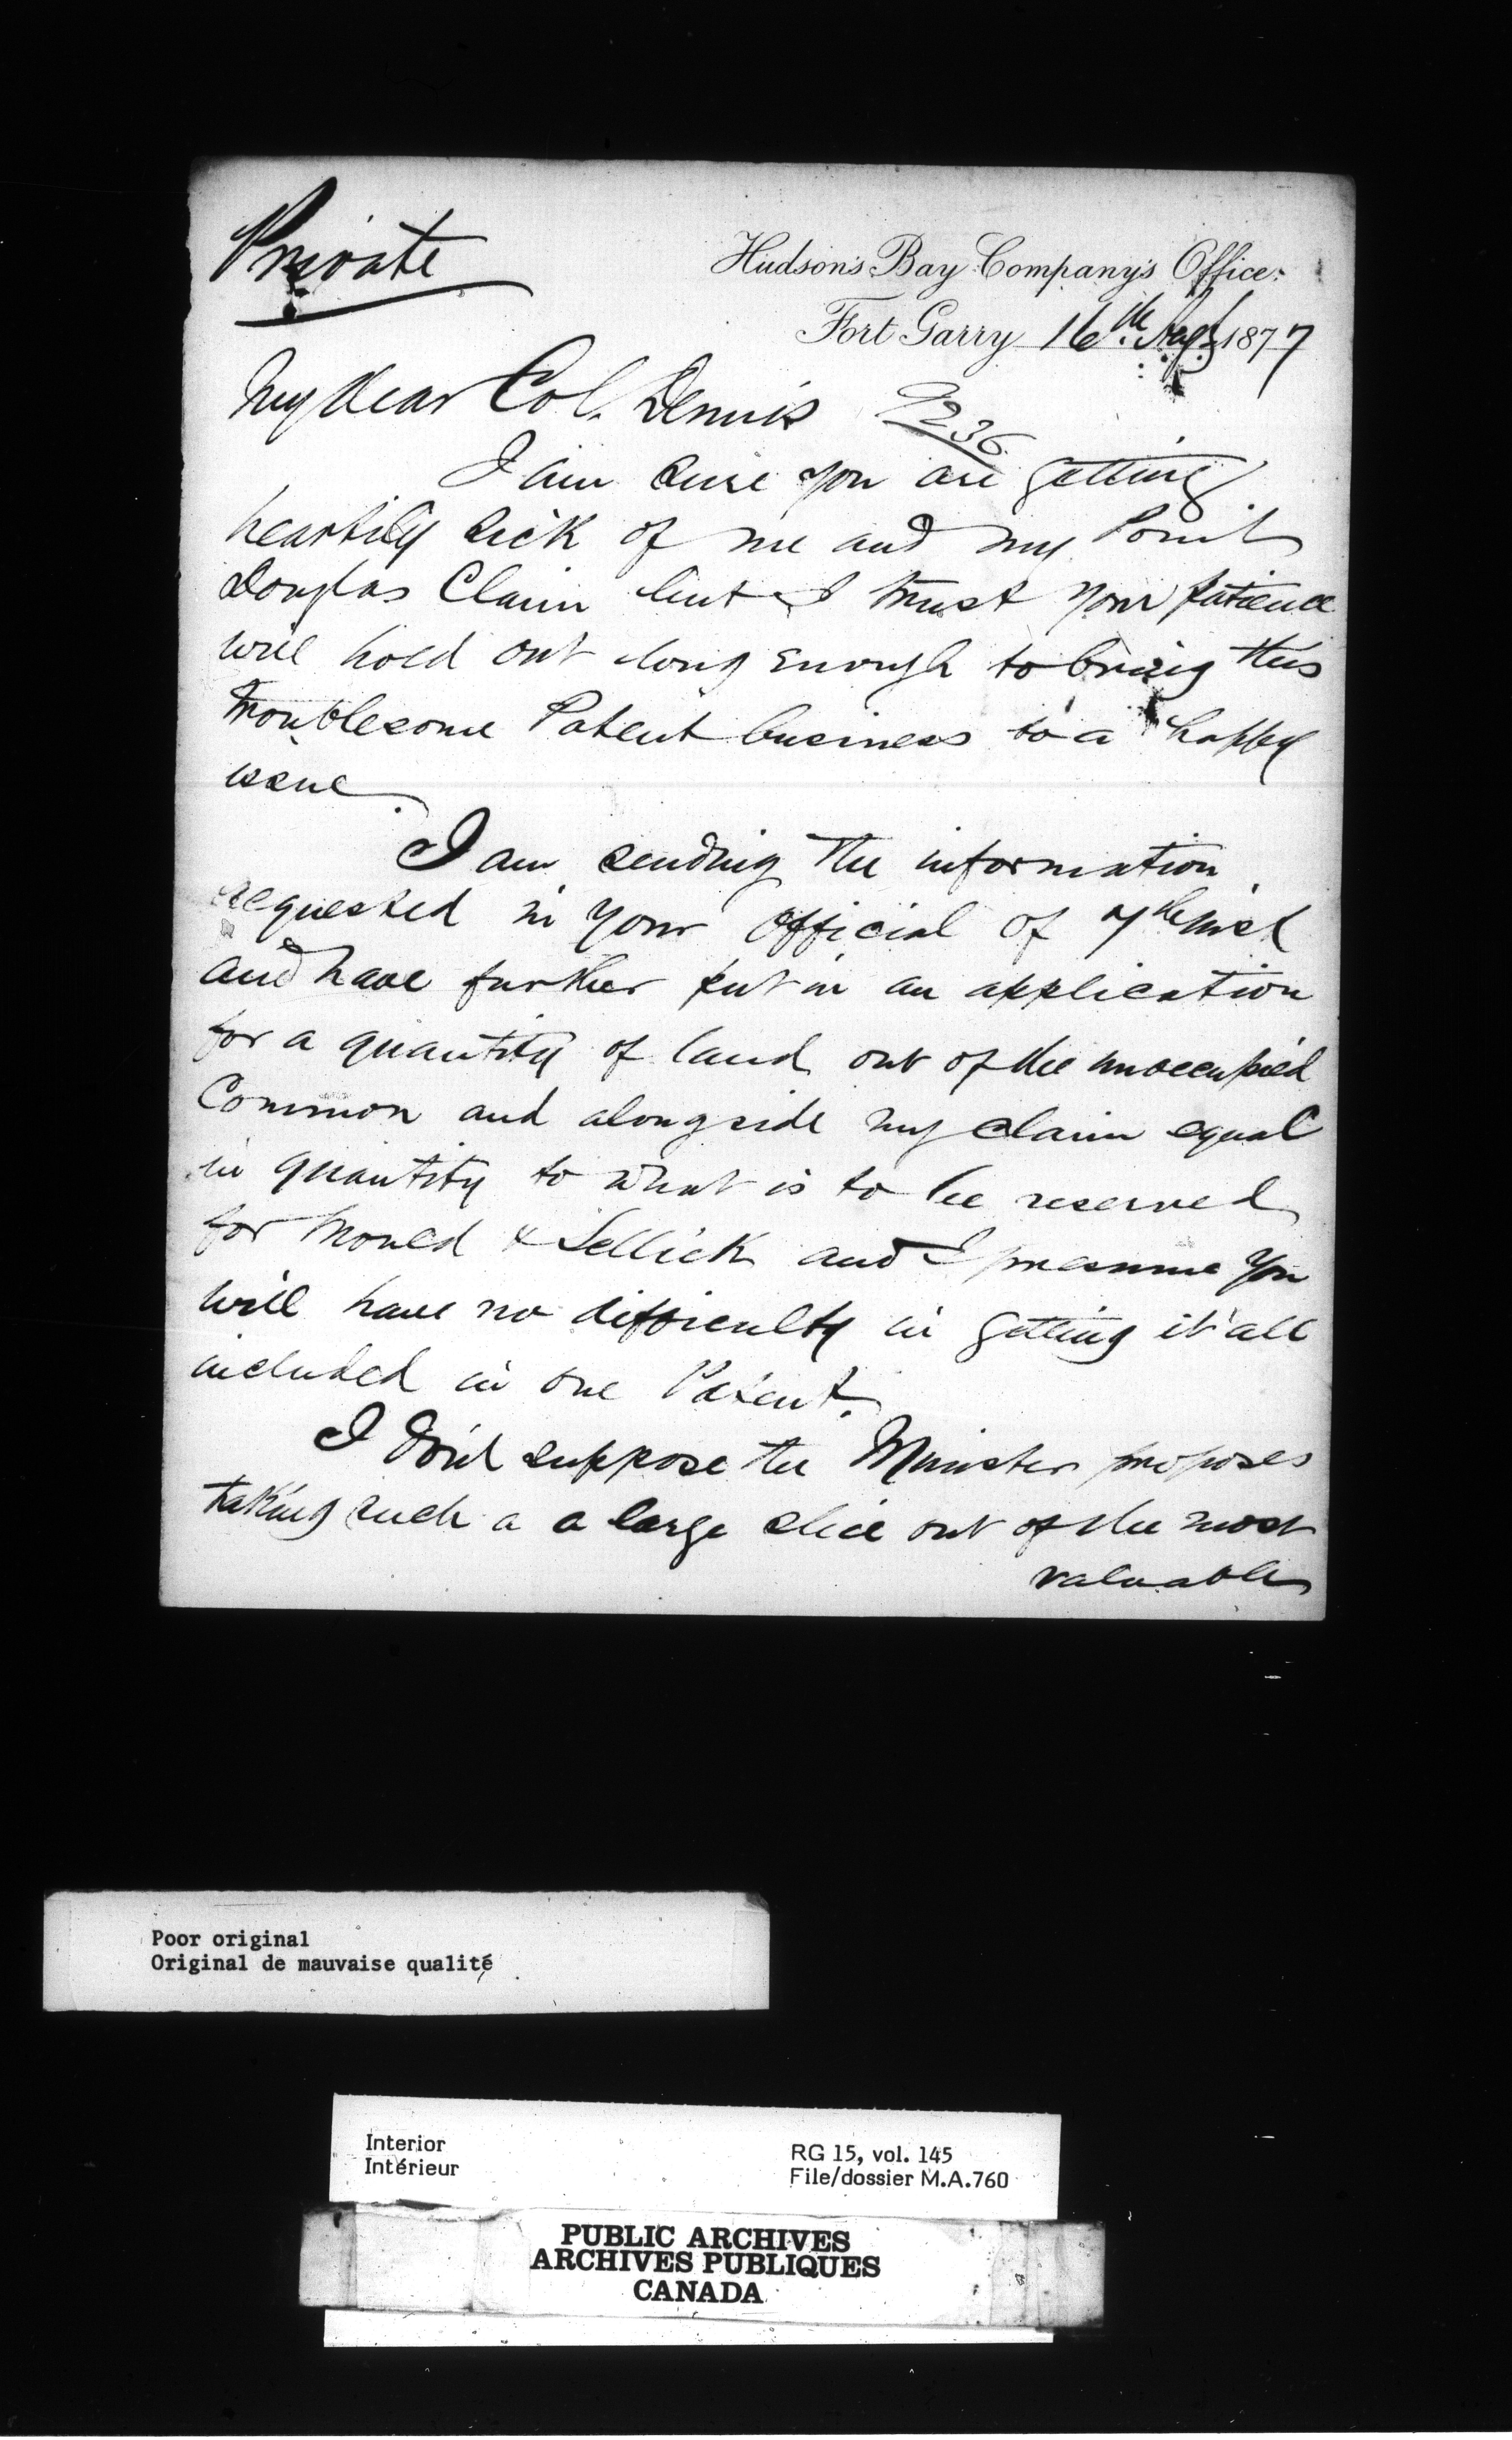 Private
Hudson's Bay Company's Office,
Fort Garry 16th Augt 1877
My dear Col. Dennis 9236
I am sure you are getting
heartily sick of me and my Point
Douglas Claim but I trust your patience
will hold out long enough to bring this
troublesome Patent business to a happy
issue.
I am sending the information
requested in your official of 7th inst
and have further put in an application
for a quantity of land out of the unoccupied
Common and alongside my claim equal
in quantity to what is to be reserved
for Mould & Sellick and I presume you
will have no difficulty in getting it all
included in one Patent.
I don't suppose the Minister proposes
taking such a a large slice out of the most
valuable
Poor original
Original de mauvaise qualité
Interior
Intérieur
RG 15, vol. 145
File/dossier M.A.760
PUBLIC ARCHIVES
ARCHIVES PUBLIQUES
CANADA